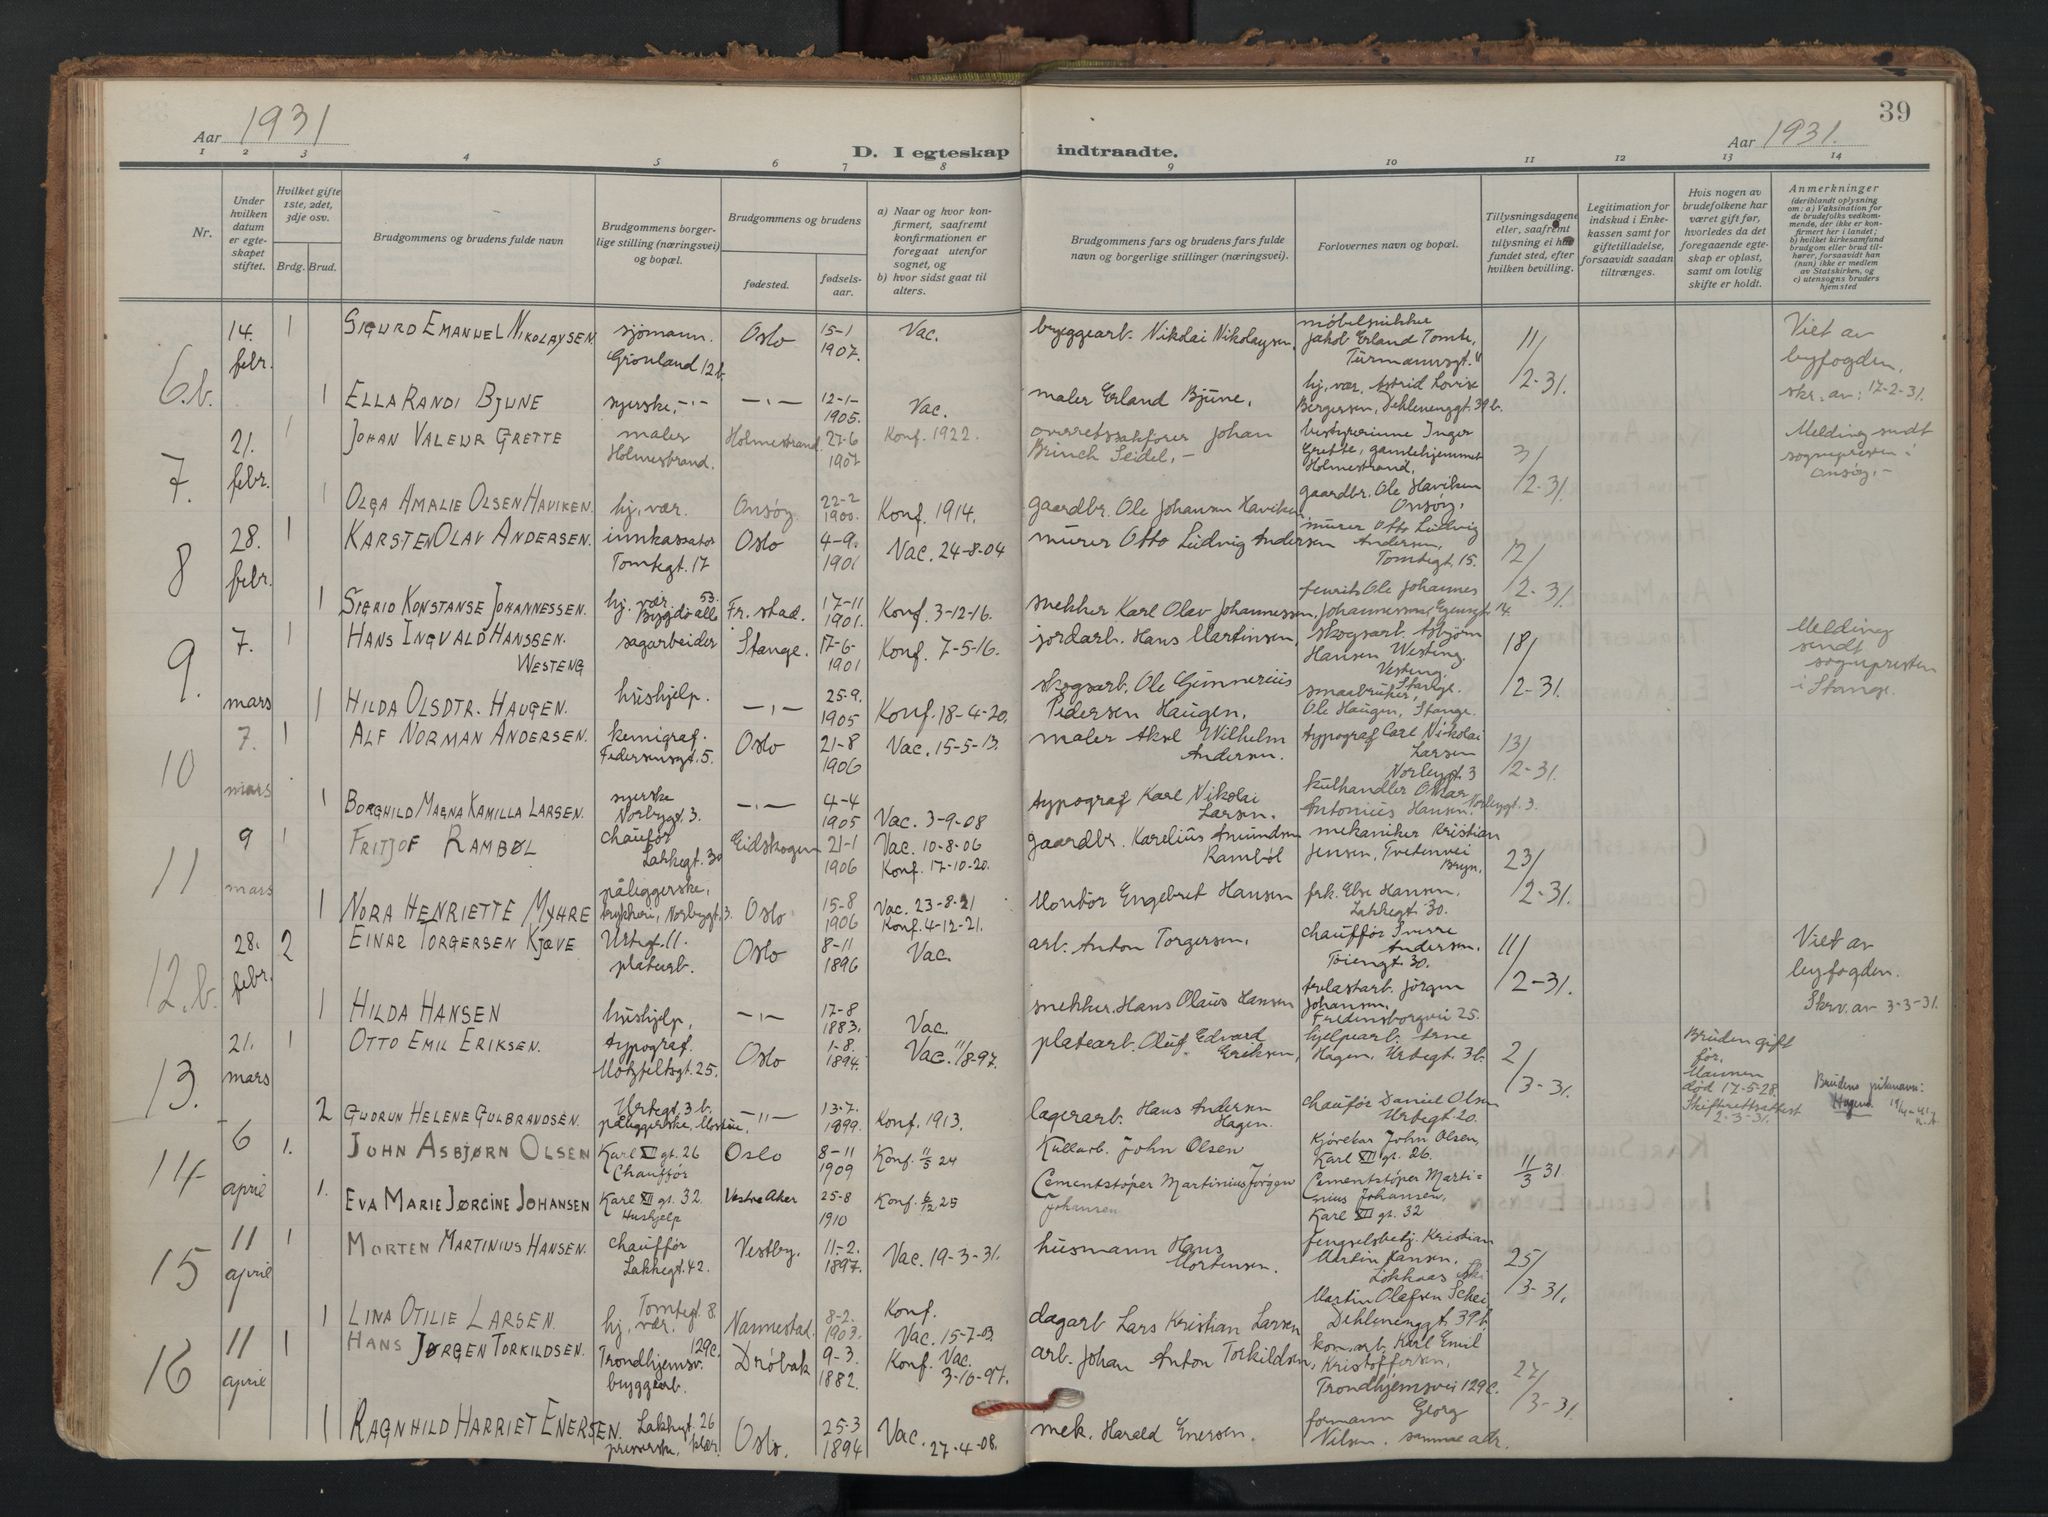 Aar 1931
D. I egteskap indtraadte.
39
Aar 1931.
1 2 3 4 5 6 7 8 9 10 11 12 13 14
Nr.
Under hvilken datum er egteskapet stiftet.
Hvilket gifte 1ste, 2det, 3dje osv.
Brdg. Brud.
Brudgommens og brudens fulde navn
Brudgommens borgerlige stilling (næringsvei) og bopæl.
Brudgommens og brudens
fødested.
fødselsaar.
a) Naar og hvor konfirmert, saafremt konfirmationen er foregaat utenfor sognet, og
b) hvor sidst gaat til alters.
Brudgommens fars og brudens fars fulde navn og borgerlige stillinger (næringsvei).
Forlovernes navn og bopæl.
Tillysningsdagene eller, saafremt tillysning ei har fundet sted, efter hvilken bevilling.
Legitimation for indskud i Enkekassen samt for giftetilladelse, forsaavidt saadan tiltrænges.
Hvis nogen av brudefolkene har været gift før, hvorledes da det foregaaende egteskap er opløst, samt om lovlig skifte er holdt.
Anmerkninger
(deriblandt oplysning om: a) Vaksination for de brudefolks vedkommende, der ikke er konfirmert her i landet; b) hvilket kirkesamfund brudgom eller brud tilhører, forsaavidt han (hun) ikke er medlem av Statskirken, og c) utensogns bruders hjemsted
6.b. 14. febr. 1 Sigurd Emanuel Nikolaysen sjømann. Grønland 12b. Oslo 15-1 1907. Vac. byggearb. Nikolai Nikolaysen, møbelsnikker Jakob Erland Tomte, 11/2-31. Viet av byfogden, skr. av: 17-2-31.
1 Ella Randi Bjune syerske, -"- -"- 12-1- 1905. Vac. maler Erland Bjune, hj. vær. Astrid Lovise Bergersen, Dehlenenggt. 39b.
7. 21. febr. 1 Johan Valeur Grette maler Holmestrand. Holmestrand 27-6 1907 Konf. 1922. overretssakfører Johan Brinch Seidel, - bestyrerinne Inger Grette, gamlehjemmet Holmestrand, 3/2-31. Melding sendt sognepresten i Onsøy. -
1 Olga Amalie Olsen Haviken. hj. vær. Onsøy. 22-2 1900. Konf. 1914. gaardbr. Ole Johansen Haviken gaardbr. Ole Haviken Onsøy.
8 28. febr. 1 Karsten Olav Andersen. innkassator Tomtegt. 17 Oslo 4-9. 1901 Vac. 24-8-04 murer Otto Ludvig Andersen murer Otto Ludvig Andersen, Tomtegt. 15. 12/2-31.
1 Sigrid Konstanse Johannessen. hj. vær. Bygdø allé 53. Fr. stad. 17-11 1901. Konf. 3-12-16. snekker Karl Olav Johannessen, Ole Johannes Johannessen, 14.
9. 7. mars 1 Hans Ingvald Hanssen. Westeng sagarbeider Stange. 17-6- 1901 Konf. 7-5-16. jordarb. Hans Martinsen, skogsarb. Asbjørn Hansen Westeng. Vesteng. Stange. 18/2-31. Melding sendt sognepresten i Stange.
1 Hilda Olsdtr. Haugen. hushjelp. -"- 25-9. 1905 Konf. 18-4-20. skogsarb. Ole Gunnerius Pedersen Haugen, smaabruker, Ole Haugen, Stange.
10 7. mars 1 Alf Norman Andersen. kemigraf. Pedersensgt. 5. Oslo 21-8 1906 Vac. 15-5-13. maler Aksel Wilhelm Andersen. typograf Carl Nikolai Larsen Norbygt 3 13/2-31.
1 Borghild Magna Kamilla Larsen. syerske Norbygt. 3. -"- 4-4 1905 Vac. 3-9-08 typograf Karl Nikolai Larsen. kulhandler Omar Antonius Hansen. Norbygt. 3.
11 9 mars 1 Fritjof Rambøl chauffør Lakkegt. 30 Eidskogen 21-1 1906 Vac. 10-8-06 Konf. 17-10-20. gaardbr. Karelius Amundsen Rambøl mekaniker Kristian Jensen, Tvetenvei Bryn. 23/2-31.
1 Nora Henriette Myhre påleggerske, trykkeri, Norbygt. 3. Oslo 15-8 1906 Vac. 23-8-21 Konf. 4-12-21. Montør Engebret Hansen frk. Else Hansen. Lakkegt. 30.
12.b. 28. febr. 2 Einar Torgersen Kjæve Urtegt. 11. platarb. Oslo 8-11 1896 Vac. arb. Anton Torgersen, chauffør Sverre Andersen, Tøiengt. 30. 11/2-31. Viet av byfogden. Skrv. av 3-3-31.
1 Hilda Hansen hushjelp, -"- 17-8 1883. Vac. snekker Hans Olaus Hansen Jørgen Johansen, Fredensborgvei 25.
13. 21. mars 1 Otto Emil Eriksen. typograf. Motzfeltsgt. 25. Oslo 1-8. 1894. Vac. 11/8-97. platearb. Oluf Edvard Eriksen, hjelpearb. Arne Hagen, Urtegt. 3b. 2/3-31. Bruden gift før. Mannen død 17-5-28. Skifterettsattest 2-3-31. Brudens pikenavn: Hagen.
2 Gudrun Helene Gulbrandsen. Urtegt. 3b. påleggerske, -"- 13-7. 1899. Konf. 1913. lagerarb. Hans Andersen Hagen. chauffør Daniel Olsen Urtegt. 20.
14 6 april 1. John Asbjørn Olsen Karl XII gt. 26 Chauffør Oslo 8-11 1909 Konf. 11/5 24 Kullarb. John Olsen Kjørebas John Olsen, Karl XII gt. 26. 11/3 31.
1. Eva Marie Jørgine Johansen Karl XII gt. 32. Hushjelp Vestre Aker 25-8 1910 Konf. 6/12 25 Cementstøper Martinius Jørgen Johansen Cementstøper Martinius Johansen, Karl XII gt. 32
15 11 april 1 Morten Martinius Hansen. chauffør Lakkegt. 42. Vestby. 11-2. 1897. Vac. 19-3-31. husmann Hans Mortensen. fengselsbetj. Kristian Martin Hansen, Ski 25/3-31.
1 Lina Otilie Larsen. Tomtegt. 8. hj. vær. Nannestad. 8-2. 1903. Konf. Vac. 15-7-03. dagarb Lars Kristian Larsen Martin Olafsen Schei Dehlenenggt. 39b.
16 11 april 1 Hans Jørgen Torkildsen. Trondhjemsv. 129c. byggearb. Drøbak 9-3. 1882. Konf. Vac. 3-10-97. arb. Johan Anton Torkildsen, kom. arb. Karl Emil Kristoffersen, Trondhjemsvei 129c. 27/3-31.
1 Ragnhild Harriet Enersen. Lakkegt. 26 presserske. Oslo. 25-3 1894 Vac. 27-4-08. mek. Harald Enersen. formann Georg Nilsen. samme adr.